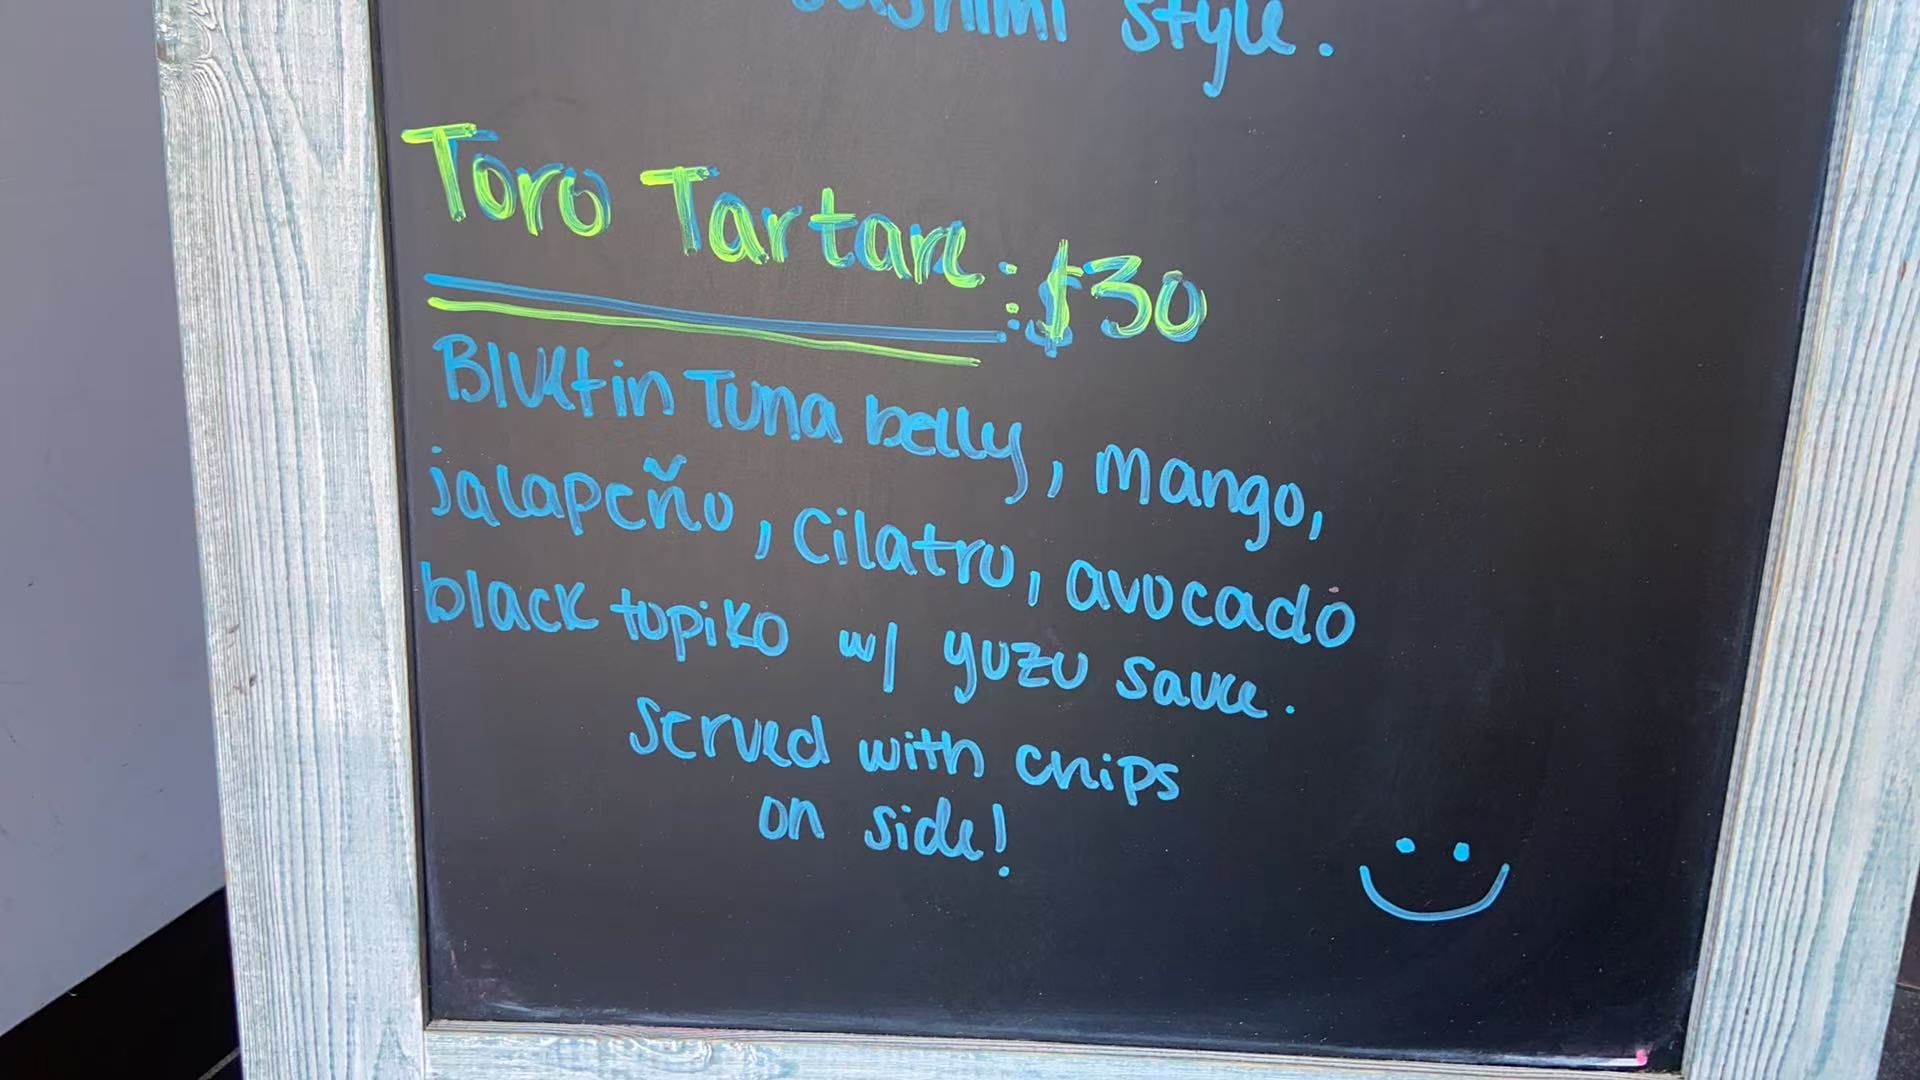 sashimi style.
Toro Tartare: $30
Bluefin Tuna belly, mango,
jalapeño, cilatro, avocado
black topiko w/ yuzu sauce.
served with chips
on side!